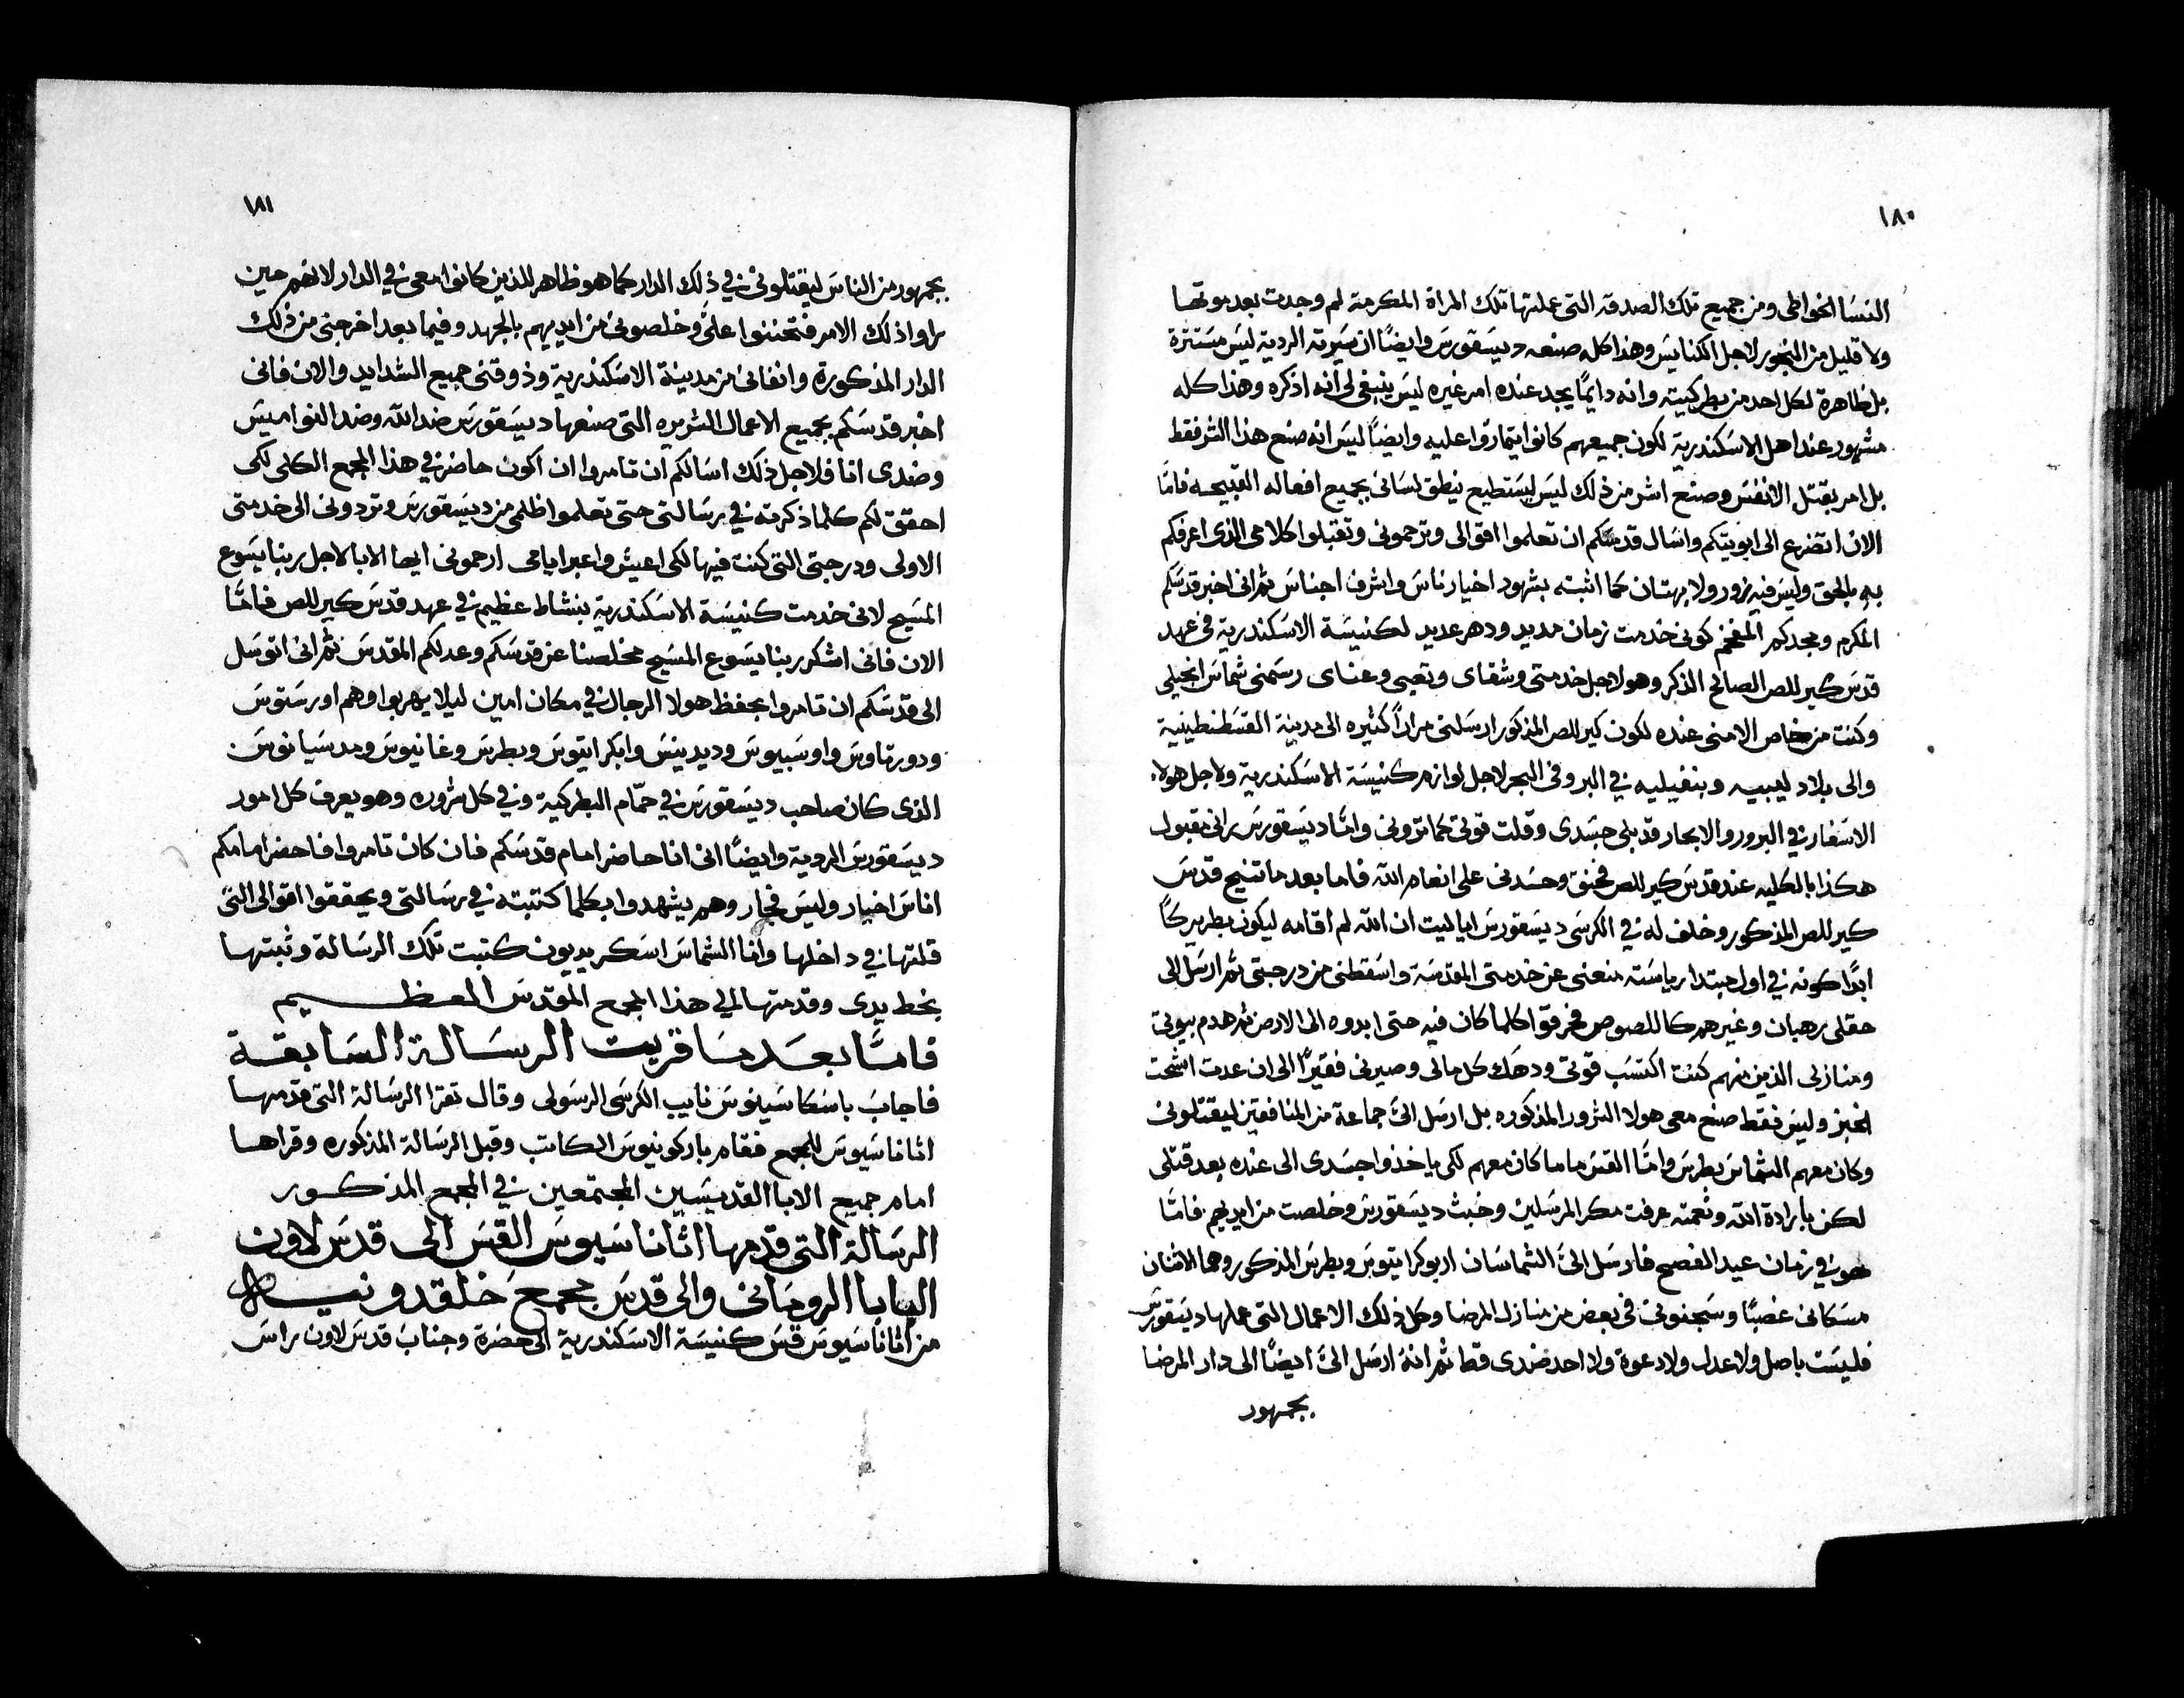 ١٨٠
النسا الخواطى ومن جميع تلك الصدقه التى عملتها تلك المراة المكرمة لم وجدت بعد موتها
ولا قليل من البخور لاجل الكنايس وهذا كله صنعه ديسقورس وايضًا ان سيرته الردية ليس مستترة
بل ظاهرة لكل احد من بطركيته وانه دايمًا يجد عنده امر غيره ليس ينبغى لى انه اذكره وهذا كله
مشهور عند اهل الاسكندرية لكون جميعهم كانوا يتمارقوا عليه وايضًا ليس انه صنع هذا الشر فقط
بل امر بقتل الانفس وصنع اشر من ذلك ليس ليستطيع ينطق لسانى بجميع افعاله القبيحه فامّا
الان اتضرع الى ابويتكم واسال قدسكم ان تعلموا اقوالى وترحمونى وتقبلوا كلامى الذى اعرفكم
به بالحق وليس فيه زور ولا بهتان كما اثبته بشهود اخيار ناس واشرف اجناس ثم انى اخبر قدسكم
المكرم ومجدكم المفخم كونى خدمت زمان مديد ودهر عديد لكنيسة الاسكندرية فى عهد
قدس كيرللص الصالح الذكر وهو لاجل خدمتى وشقاى وتعبى وعناى رسمنى شماس انجيلى
وكنت من خاص الامنى عنده لكون كيرللص المذكور ارسلنى مرارًا كثيره الى مدينة القسطنطينية
والى بلاد ليبيه وبنفيليه فى البر وفى البحر لاجل لوازم كنيسة الاسكندرية ولاجل هولاء
الاسفار فى البرور والابحار قد بلى جسدى وقلت قوتى كما ترونى وامّا ديسقورس رانى مقبول
هكذا بالكليه عند قدس كيرللص فحنق وحسدنى على انعام الله فاما بعد ما تنيح قدس
كيرللص المذكور وخلف له فى الكرسى ديسقورس ايا ليت ان الله لم اقامه ليكون بطريركًا
ابدًا كونه فى اول مبتدا رياسته منعنى عن خدمتى المقدسة واسقطنى من درجتى ثم ارسل الى
حقلى رهبان وغيرهم كاللصوص فحرقوا كلما كان فيه حتى ابدوه الى الارض ثم هدم بيوتى
ومنازلى الذين منهم كنت اكتسب قوتى ودهك كل مالى وصيرنى فقيرًا الى ان عدت اشحت
الخبز وليس فقط صنع معى هولا الشرور المذكوره بل ارسل الىّ جماعة من المنافقين ليقتلونى
وكان معهم الشماس بطرس وامّا القس ماما كان معهم لكى ياخذوا جسدى الى عنده بعد قتلى
لكن بارادة الله ونعمته عرفت مكر المرسلين وخبث ديسقورس وخلصت من ايديهم فامّا
هو فى زمان عيد الفصح فارسل الىّ الشماسان اربوكراتيوس وبطرس المذكور وهما الاثنان
مسكانى غصبًا وسجنونى فى بعض من منازل المرضا وكل ذلك الاعمال التى عملها ديسقورس
فليست باصل ولا عدل ولا دعوة ولا احد ضدى قط ثم انه ارسل الىّ ايضًا الى دار المرضا
بجمهور
١٨١
بجمهور من الناس ليقتلونى فى ذلك الدار كما هو ظاهر للذين كانوا معى فى الدار لانهم حين
راوا ذلك الامر فتحننوا علىّ وخلصونى من ايديهم بالجهد وفيما بعد اخرجنى من ذلك
الدار المذكورة وانفانى من مدينة الاسكندرية وذوقنى جميع الشدايد والان فانى
اخبر قدسكم بجميع الاعمال الشريره التى صنعها ديسقورس ضد الله وضد النواميس
وضدى انا فلاجل ذلك اسالكم ان تامروا ان اكون حاضر فى هذا المجمع الكلى لكى
احقق لكم كلما ذكرته فى رسالتى حتى تعلموا ظلمى من ديسقورس وتردونى الى خدمتى
الاولى ودرجتى التى كنت فيها لكى اعيش واعبر ايامى ارحمونى ايها الابا لاجل ربنا يسوع
المسيح لانى خدمت كنيسة الاسكندرية بنشاط عظيم فى عهد قدس كيرللص فامّا
الان فانى اشكر ربنا يسوع المسيح مخلصنا عن قدسكم وعدلكم المقدس ثم انى اتوسل
الى قدسكم ان تامروا بحفظ هولا الرجال فى مكان امين ليلا يهربوا وهم اورستوس
ودورتاوس واوسبيوس وديدينس وابكراتيوس وبطرس وغانيوس ومدسيانوس
الذى كان صاحب ديسقورس فى حمّام البطركية وفى كل شروره وهو يعرف كل امور
ديسقورس الردية وايضًا انى انا حاضر امام قدسكم فان كان تامروا فاحضر امامكم
اناس اخيار وليس فجار وهم يشهدوا بكلما كتبته فى رسالتى ويحققوا اقوالى التى
قلتها فى داخلها وانا الشماس اسكريديون كتبت تلك الرسالة وثبتها
بخط يدى وقدمتها الى هذا المجمع المقدس العظيم
فامّا بعد ما قريت الرسالة السابقة
فاجاب باسكاسينوس نايب الكرسى الرسولى وقال تقرا الرسالة التى قدمها
اثاناسيوس للمجمع فقام باركونيوس الكاتب وقبل الرسالة المذكوره وقراها
امام جميع الابا القديسيين المجتمعين فى المجمع المذكور
الرسالة التى قدمها اثاناسيوس القس الى قدس لاون
البابا الرومانى والى قدس مجمع خلقدونيه
من اثاناسيوس قس كنيسة الاسكندرية الى حضرة وجناب قدس لاون راس